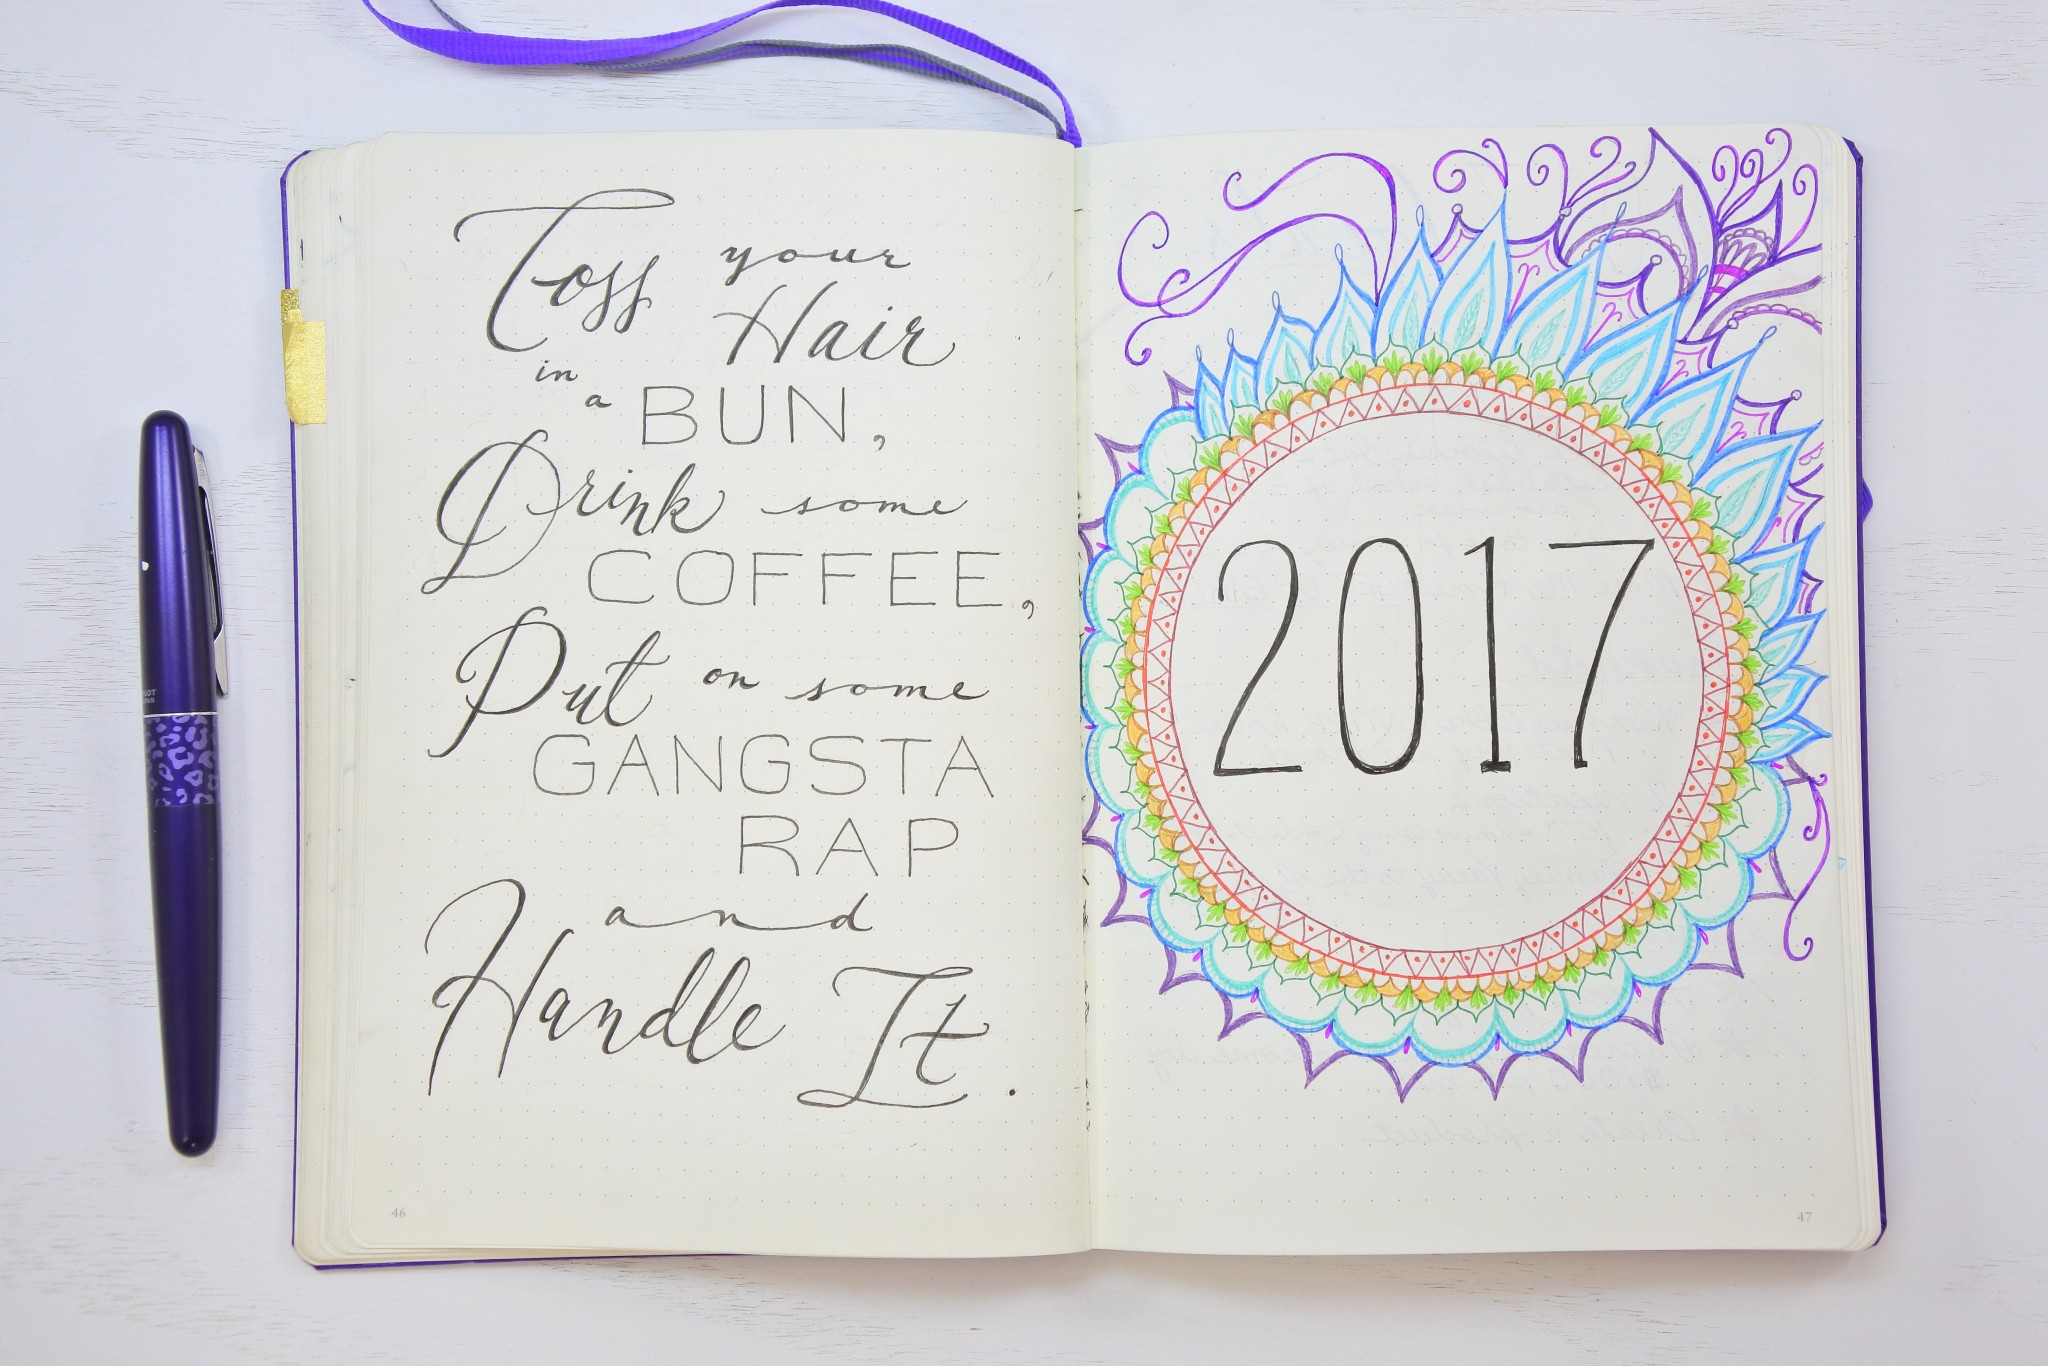 Toss your
Hair
in a BUN,
Drink some
COFFEE,
Put on some
GANGSTA
RAP
and
Handle It.
46
2017
Create a product
47